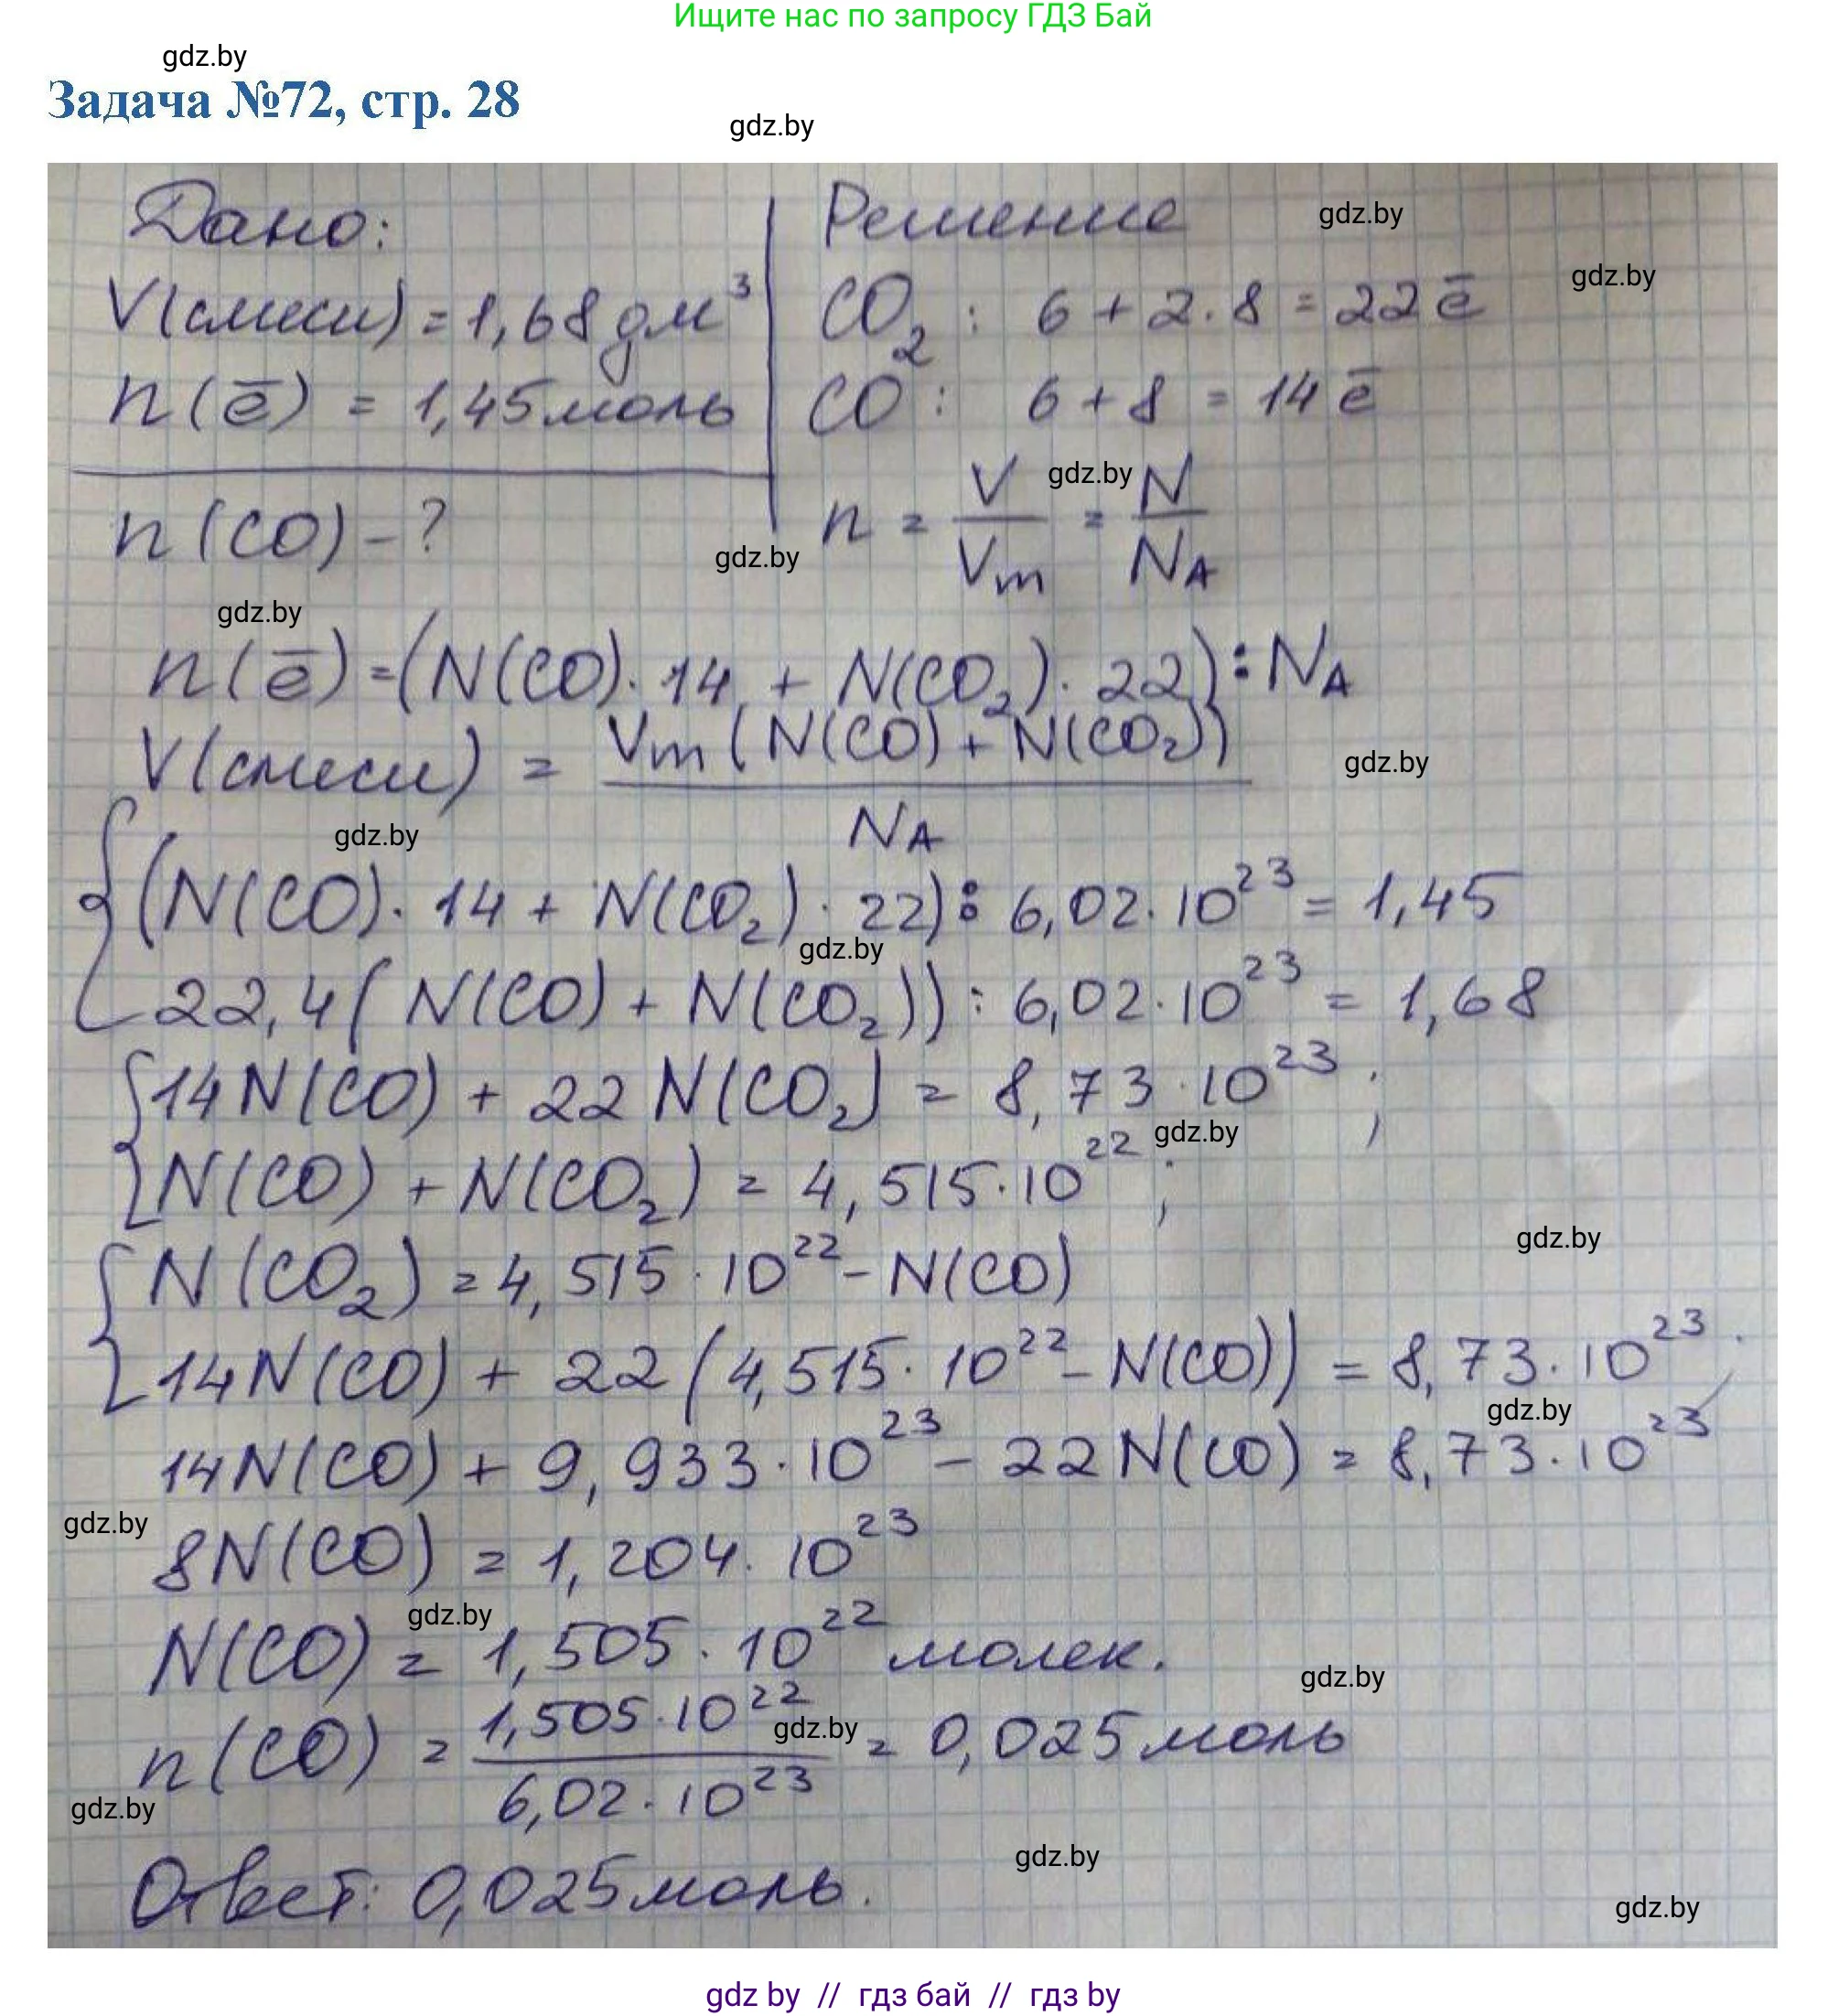 Ищите нас по запросу ГДЗ Бай
gdz.by
Задача №72, стр. 28
gdz.by
Дано:
V(смеси) = 1,68 дм³
n(ē) = 1,45 моль
n(CO) - ?
Решение
gdz.by
gdz.by
CO₂ : 6 + 2·8 = 22 ē
CO : 6 + 8 = 14 ē
n = V/Vm = N/NA
gdz.by
gdz.by
gdz.by
n(ē) = (N(CO)·14 + N(CO₂)·22) : NA
V(смеси) = Vm(N(CO) + N(CO₂)) / NA
gdz.by
gdz.by
{(N(CO)·14 + N(CO₂)·22) : 6,02·10²³ = 1,45
gdz.by
22,4(N(CO) + N(CO₂)) : 6,02·10²³ = 1,68
{14N(CO) + 22N(CO₂) = 8,73·10²³ ;
gdz.by
N(CO) + N(CO₂) = 4,515·10²² ;
gdz.by
{N(CO₂) = 4,515·10²² - N(CO)
14N(CO) + 22(4,515·10²² - N(CO)) = 8,73·10²³ ;
gdz.by
14N(CO) + 9,933·10²³ - 22N(CO) = 8,73·10²³
gdz.by
8N(CO) = 1,204·10²³
gdz.by
N(CO) = 1,505·10²² молек.
gdz.by
gdz.by
n(CO) = 1,505·10²² / 6,02·10²³ = 0,025 моль
gdz.by
gdz.by
Ответ: 0,025 моль.
gdz.by
gdz by // гдз бай // гдз by